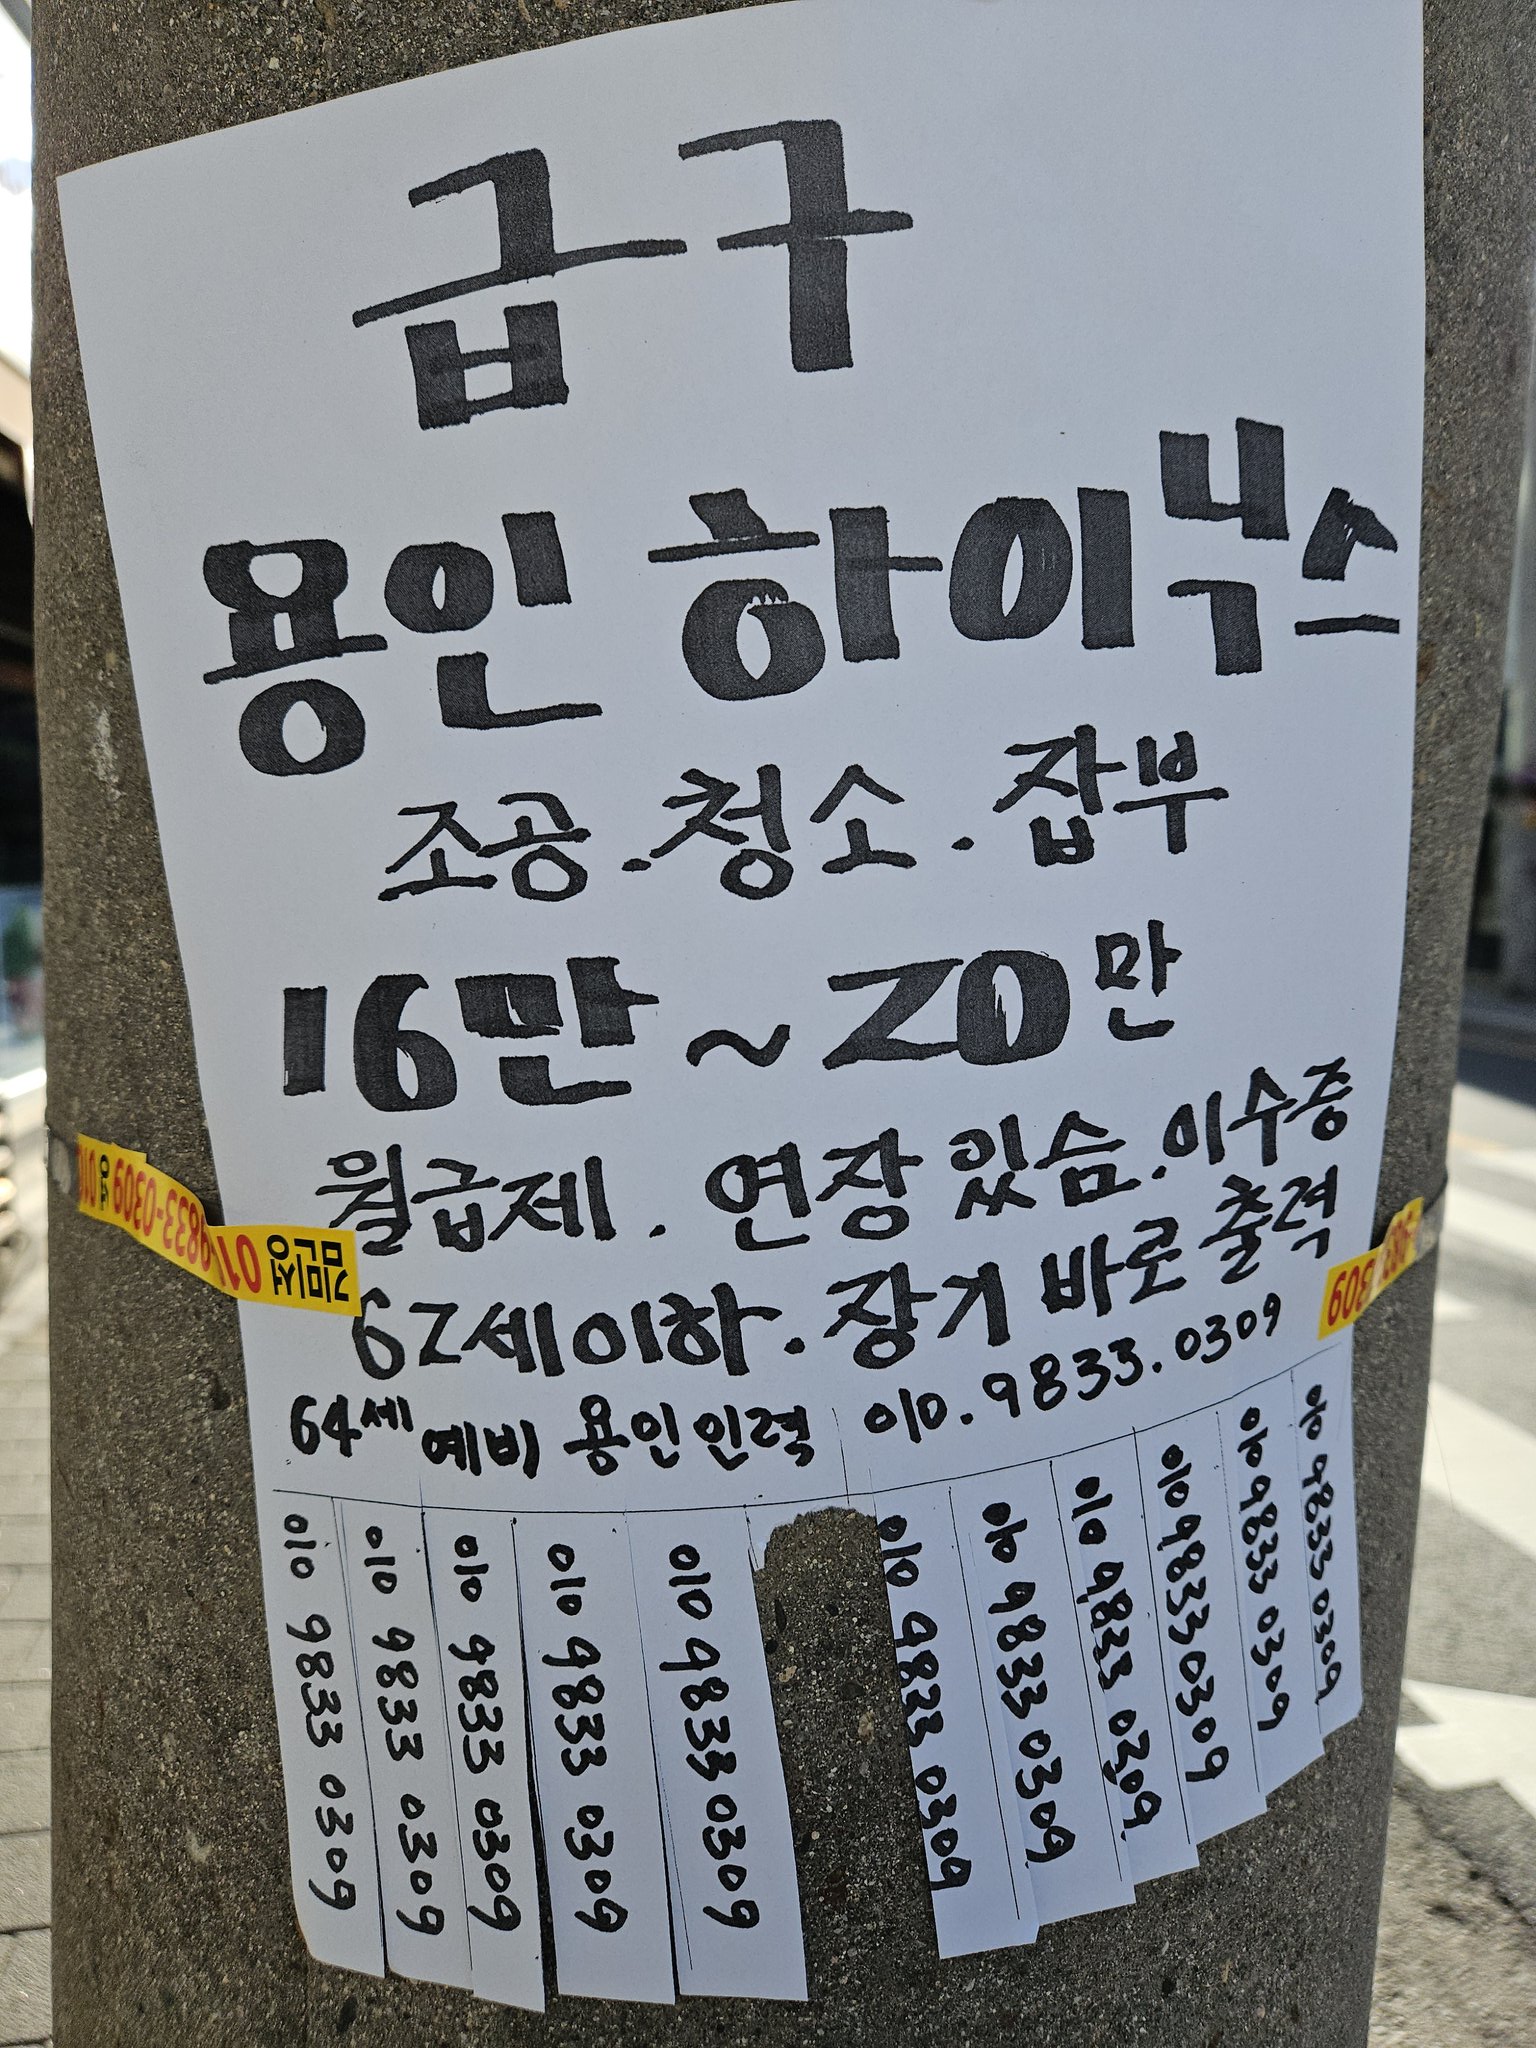 급구
용인 하이닉스
조공.청소.잡부
16만~20만
월급제. 연장있슴.이수증
62세이하.장기 바로출력
64세 예비 용인인력 010.9833.0309
010 9833 0309
010 9833 0309
010 9833 0309
010 9833 0309
010 9833 0309
010 9833 0309
010 9833 0309
010 9833 0309
010 9833 0309
010 9833 0309
010 9833 0309
9833-0309
0309